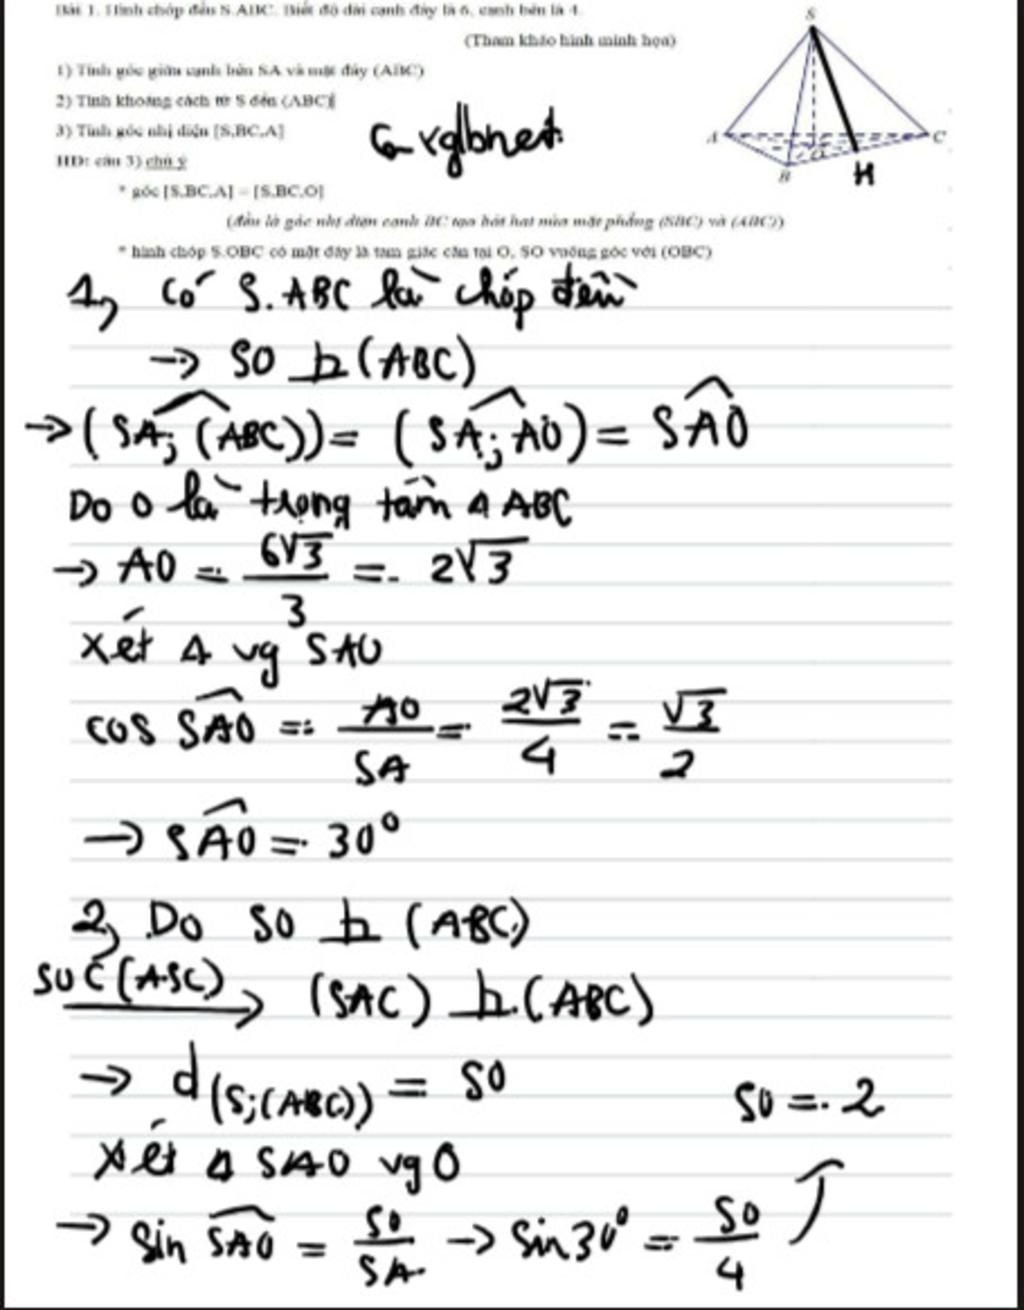 Bài 1. Hình chóp đều S.ABC. Biết độ dài cạnh đáy là 6, cạnh bên là 4.
(Tham khảo hình minh họa)
1) Tính góc giữa cạnh bên SA và mặt đáy (ABC)
2) Tính khoảng cách từ S đến (ABC)
3) Tính góc nhị diện [S,BC,A]
HD: câu 3) chú ý
* góc [S,BC,A] = [S,BC,O]
(đều là góc nhị diện cạnh BC tạo bởi hai nửa mặt phẳng (SBC) và (ABC))
* hình chóp S.OBC có mặt đáy là tam giác cân tại O, SO vuông góc với (OBC)
S
A
C
B
H
1, Có S.ABC là chóp đều
→ SO ⊥ (ABC)
→ (SA; (ABC)) = (SA; AO) = SAO
Do O là trọng tâm Δ ABC
→ AO = 6√3/3 = 2√3
Xét Δ vg SAO
cos SAO = AO/SA = 2√3/4 = √3/2
→ SAO = 30°
2, Do SO ⊥ (ABC)
SO ⊂ (ASC) → (SAC) ⊥ (ABC)
→ d(S;(ABC)) = SO
SO = 2
Xét Δ SAO vg O
→ Sin SAO = SO/SA → Sin30° = SO/4